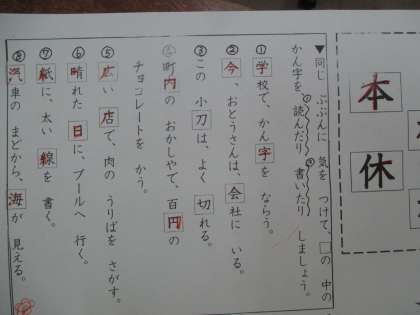 ▼同じ ぶぶんに 気を つけて、□の 中の
かん字を、読んだり 書いたり しましょう。
① 学校で、かん字を ならう。
② 今、おとうさんは、会社に いる。
③ この 小刀は、よく 切れる。
④ 町内の おかしやで、百円の
チョコレートを かう。
⑤ 広い 店で、肉の うりばを さがす。
⑥ 晴れた 日に、プールへ 行く。
⑦ 紙に、太い 線を 書く。
⑧ 汽車の まどから、海が 見える。
本
休